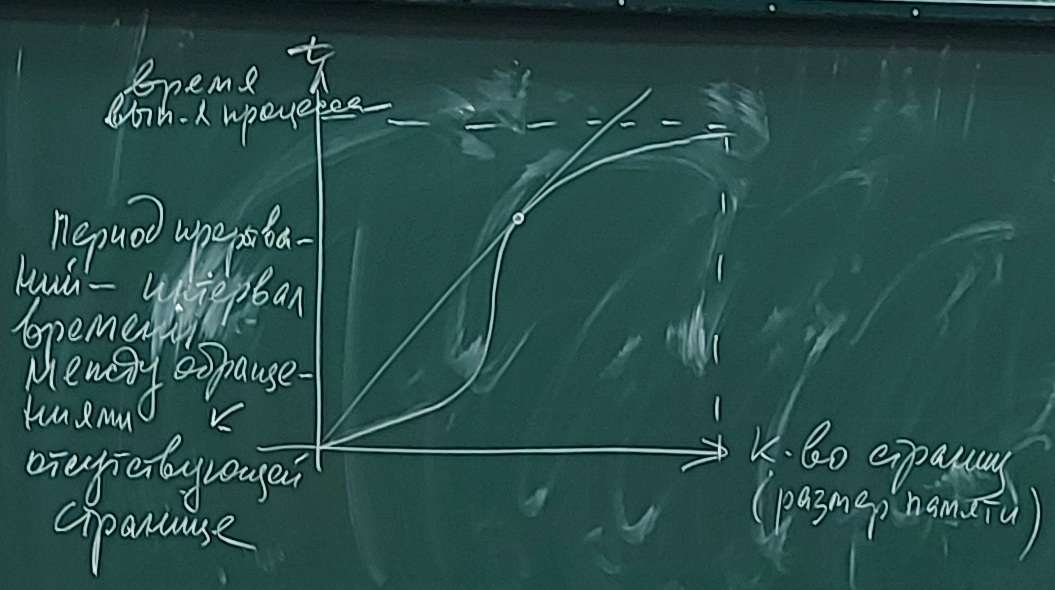 t
время
вып-я процесса
Период прерыва-
ний – интервал
времени
между обраще-
ниями к
отсутствующей
странице
К-во страниц
(размер памяти)